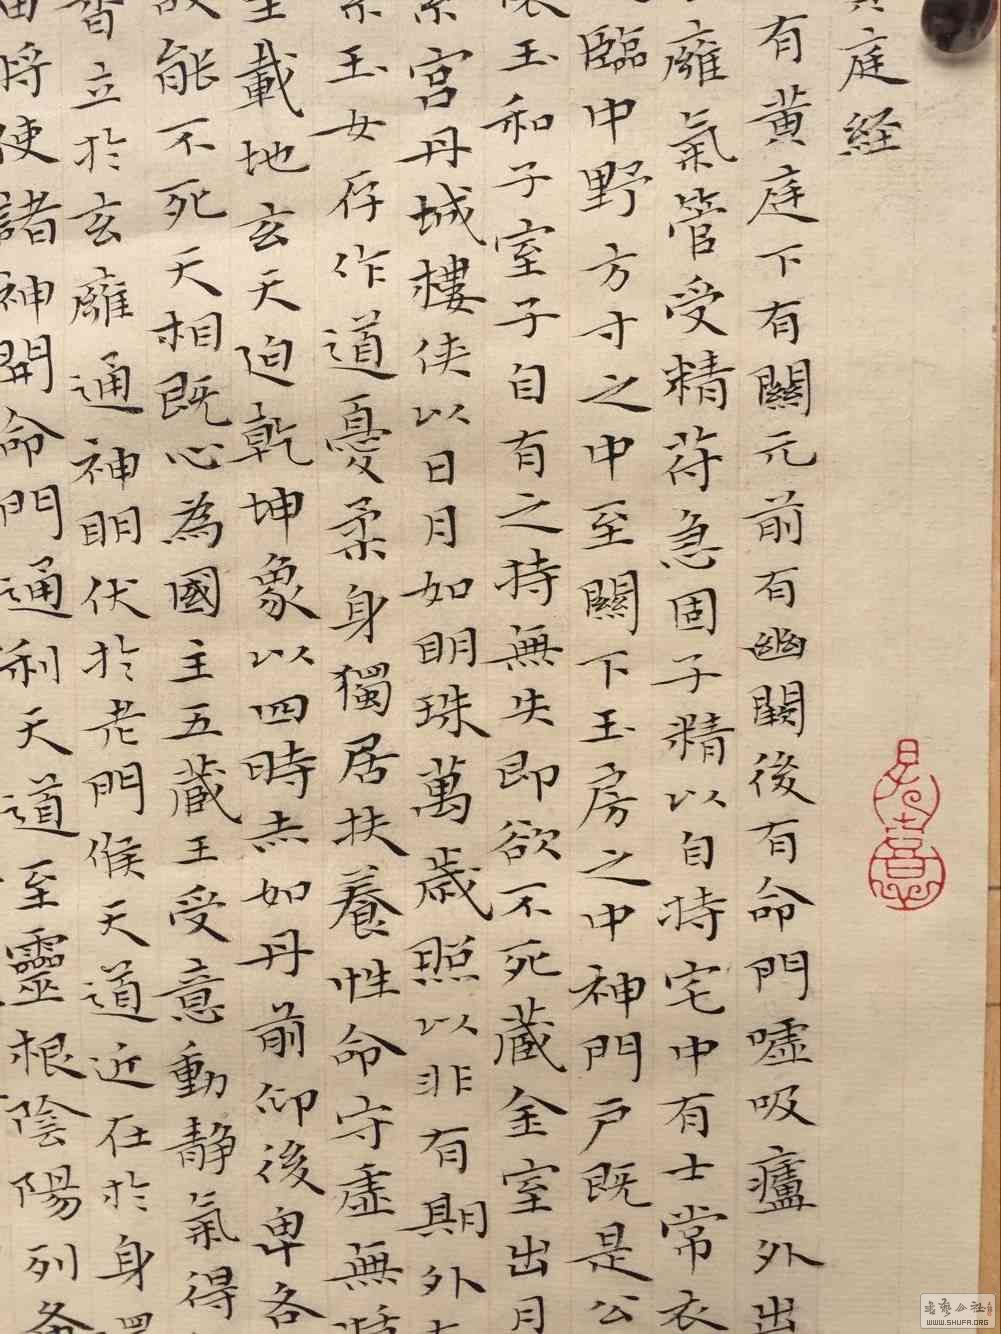 庭経
有黄庭下有關元前有幽闕後有命門噓吸廬外出
廱氣管受精苻急固子精以自持宅中有士常衣
臨中野方寸之中至關下玉房之中神門戶既是公
玉和子室子自有之持無失即欲不死藏金室出月
宮丹城樓俠以日月如明珠萬歲照以非有期外
玉女存作道憂柔身獨居扶養性命守虛無
載地玄天迫乾坤象以四時赤如丹前仰後卑各
能不死天相既心為國主五藏王受意動静氣得
立於玄廱通神明伏於老門候天道近在於身
將使諸神開命門通利天道至靈根陰陽列各
书艺公社
www.SHUFA.ORG